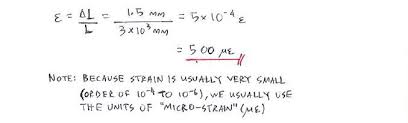 ε = ΔL / L = 1.5 mm / 3×10³ mm = 5×10⁻⁴ ε
= 500 με
NOTE: BECAUSE STRAIN IS USUALLY VERY SMALL
(ORDER OF 10⁻⁴ TO 10⁻⁶), WE USUALLY USE
THE UNITS OF "MICRO-STRAIN" (με)